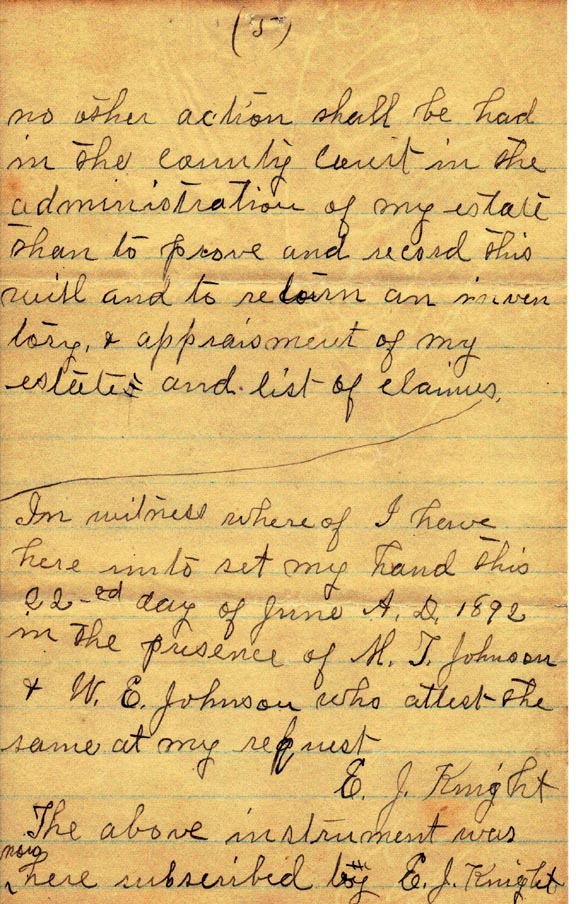 (5)
no other action shall be had
in the county Court in the
administration of my estate
than to prove and record this
will and to return an inven
tory, & appraisment of my
estate and list of claims,
In witness where of I have
here unto set my hand this
22-nd day of June A. D. 1892
in the presence of M. T. Johnson
& W. E. Johnson who attest the
same at my request
E. J. Knight
The above instrument was
now
here subscribed by E. J. Knight